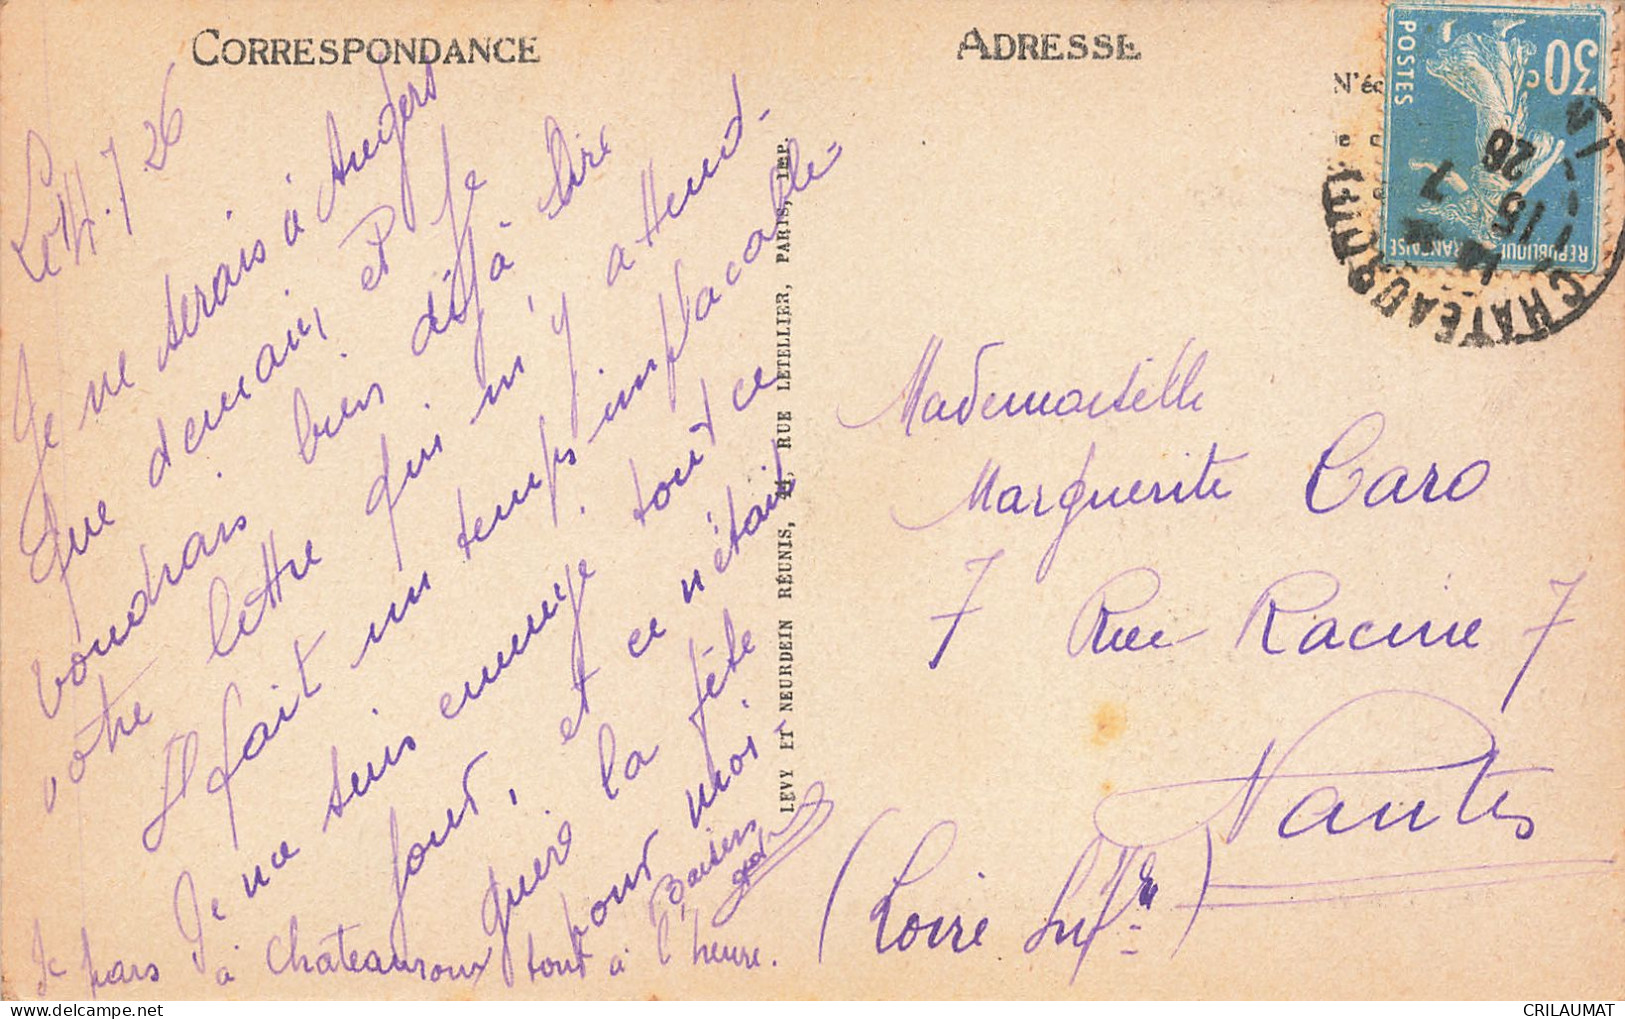 CORRESPONDANCE
Le 14.7.26
Je ne serais à Angers
que demain, et je
voudrais bien déjà lire
votre lettre qui m'y attend.
Il fait un temps implacable-
Je me suis ennuyé tout ce
jour, et ce n'était
guère la fête
pour moi-
Baisers
Je pars à Chateauroux tout à l'heure.
LEVY ET NEURDEIN RÉUNIS, 44, RUE LETELLIER, PARIS, IMP.
ADRESSE
N'éc
30c
POSTES
REPUBLIQUE FRANÇAISE
CHATEAUROUX
15
14
7
26
Mademoiselle
Marguerite Caro
7 Rue Racine 7
Nantes
(Loire Infre)
CRILAUMAT